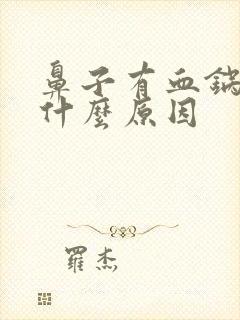 鼻子有血鍋
什麼原因
羅杰